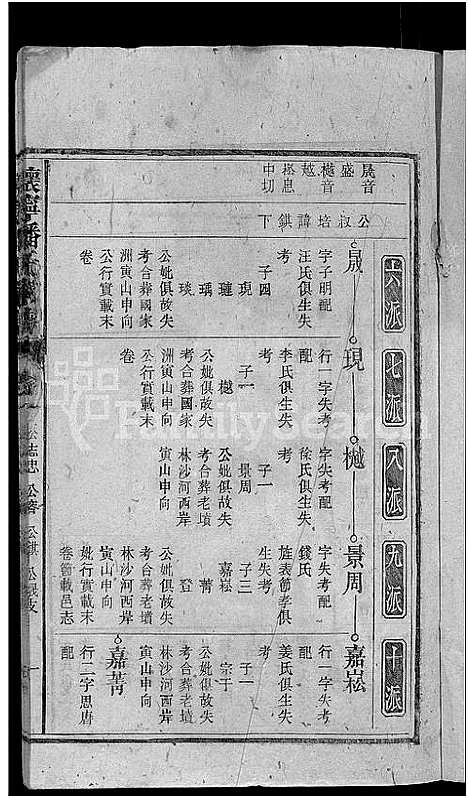 六派
七派
八派
九派
十派
晟音
盛
樾音
越
崧息
中切
公
叔
培
諱
錤
下
晟
字子明配
汪氏俱生失
考
子四
晛
璉
瑀
琰
公妣俱故失
考合葬國家
洲寅山申向
公行實載末
卷
晛
行一字失考
配
李氏俱生失
考
子一
樾
公妣俱故失
考合葬國家
洲寅山申向
公行實載末
卷
樾
字失考配
徐氏俱生失
考
子一
景周
公妣俱故失
考合葬老墳
林沙河西岸
寅山申向
景周
字失考配
錢氏
旌表節孝俱
生失考
子三
嘉崧
菁
登
公妣俱故失
考合葬老墳
林沙河西岸
寅山申向
妣行實載末
卷節載邑志
嘉崧
行一字失考
配
姜氏俱生失
考
子一
宗于
公妣俱故失
考合葬老墳
林沙河西岸
寅山申向
嘉菁
行二字思唐
配
FamilySearch